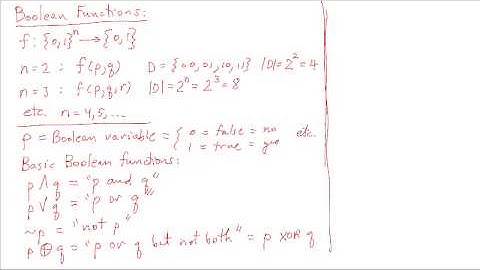 Boolean Functions:
f: {0,1}ⁿ → {0,1}
n=2 : f(p,q) D = {00,01,10,11} |D|=2²=4
n=3 : f(p,q,r) |D|=2ⁿ=2³=8
etc. n=4,5,...
p = Boolean variable = { 0 = false = no etc.
1 = true = yes
Basic Boolean functions:
p ∧ q = "p and q"
p ∨ q = "p or q"
~p = "not p"
p ⊕ q = "p or q but not both" = p xor q